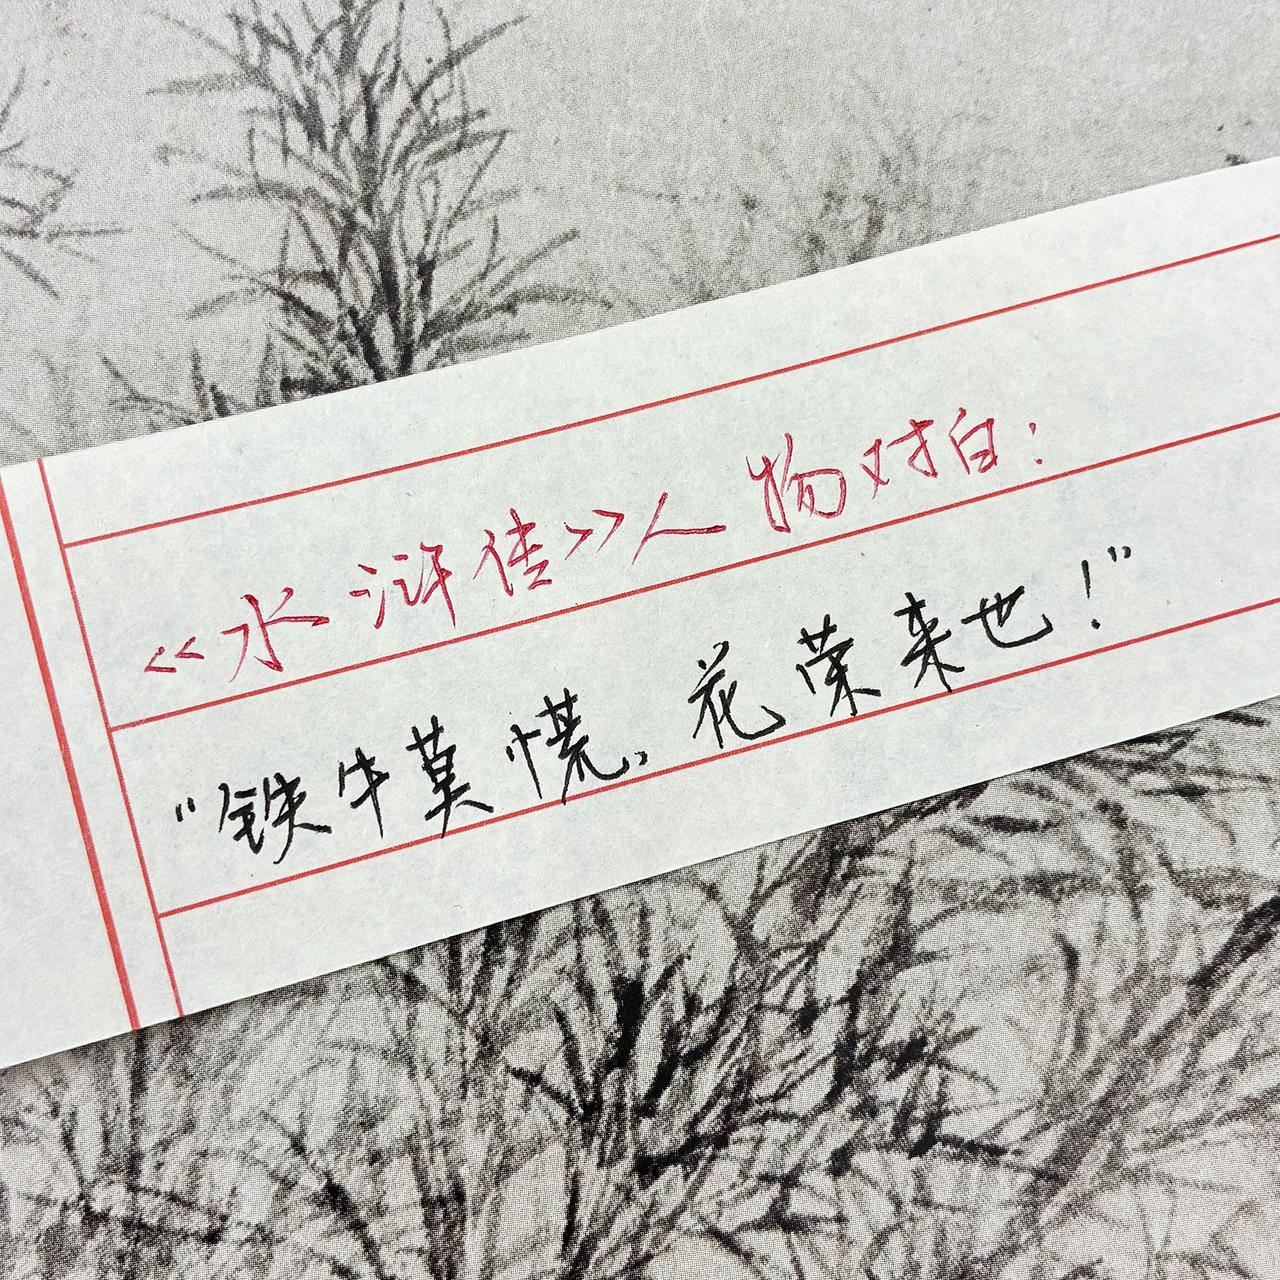 《水浒传》人物对白：
“铁牛莫慌，花荣来也！”